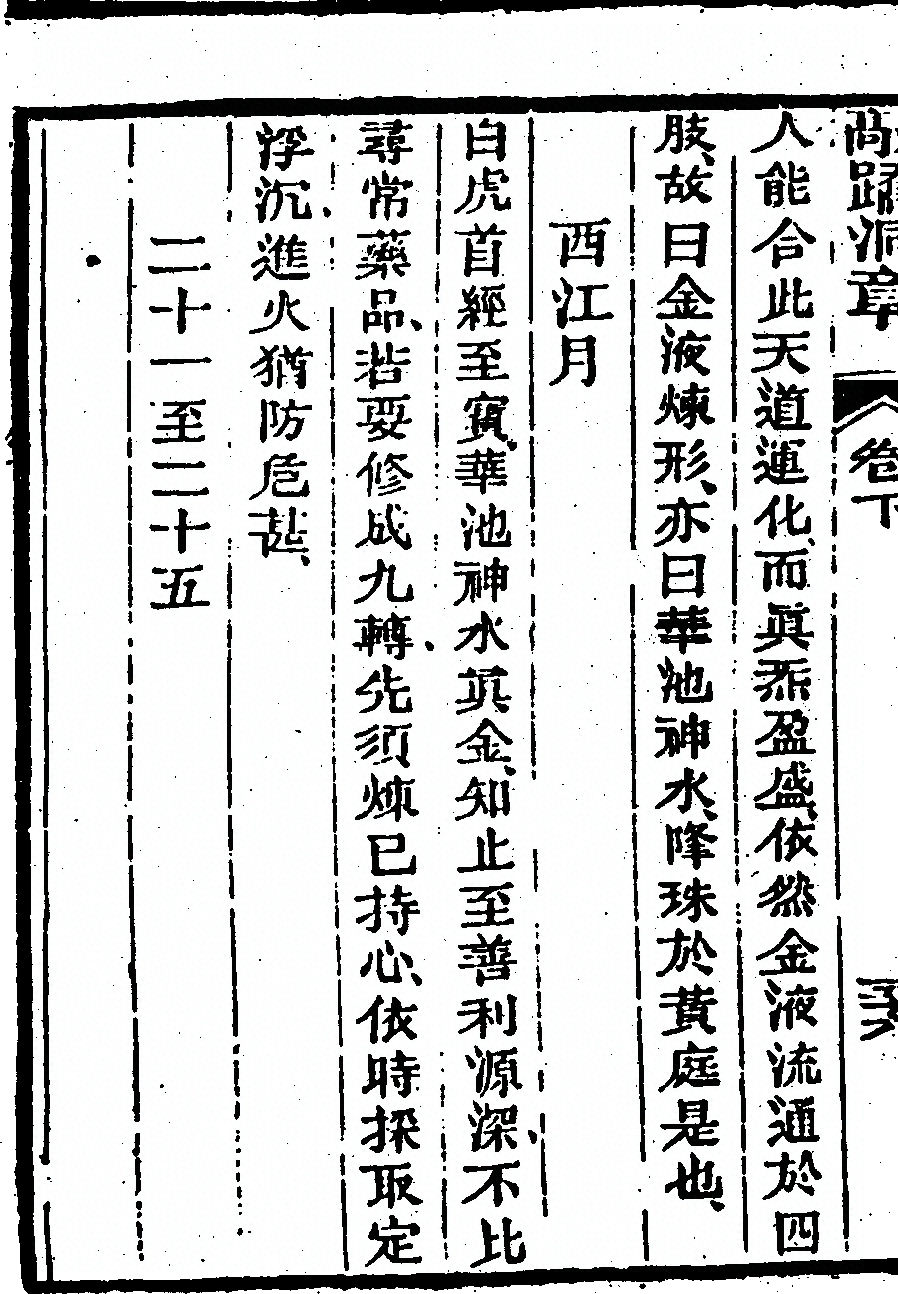 人能合此天道運化、而眞炁盈盛、依然金液流通於四
肢、故曰金液煉形、亦曰華池神水、降珠於黃庭是也、
西江月
白虎首經至寳、華池神水眞金、知止至善利源深、不比
尋常藥品、若要修成九轉、先須煉已持心、依時採取定
浮沉、進火猶防危甚、
二十一至二十五